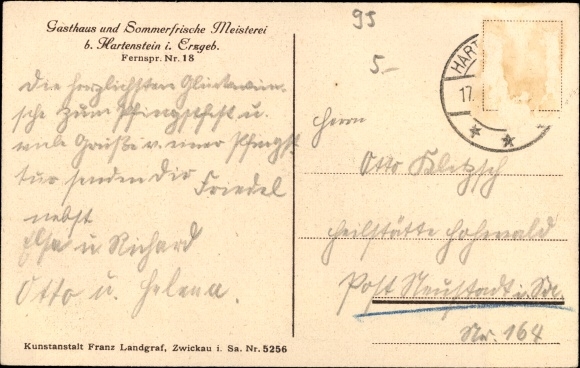 Gasthaus und Sommerfrische Meisterei
b. Hartenstein i. Erzgeb.
Fernspr. Nr. 18
95
5.-
HART
17.
Die herzlichsten Glückwün-
sche zum Pfingstfest u.
viele Grüße v. einer Pfingst
tur senden Dir Friedel
nebst
Elsa u Richard
Otto u. Helena.
Herrn
Otto Klitzsch
Heilstätte Hohwald
Post Neustadt i. Sa.
Nr. 164
Kunstanstalt Franz Landgraf, Zwickau i. Sa. Nr. 5256